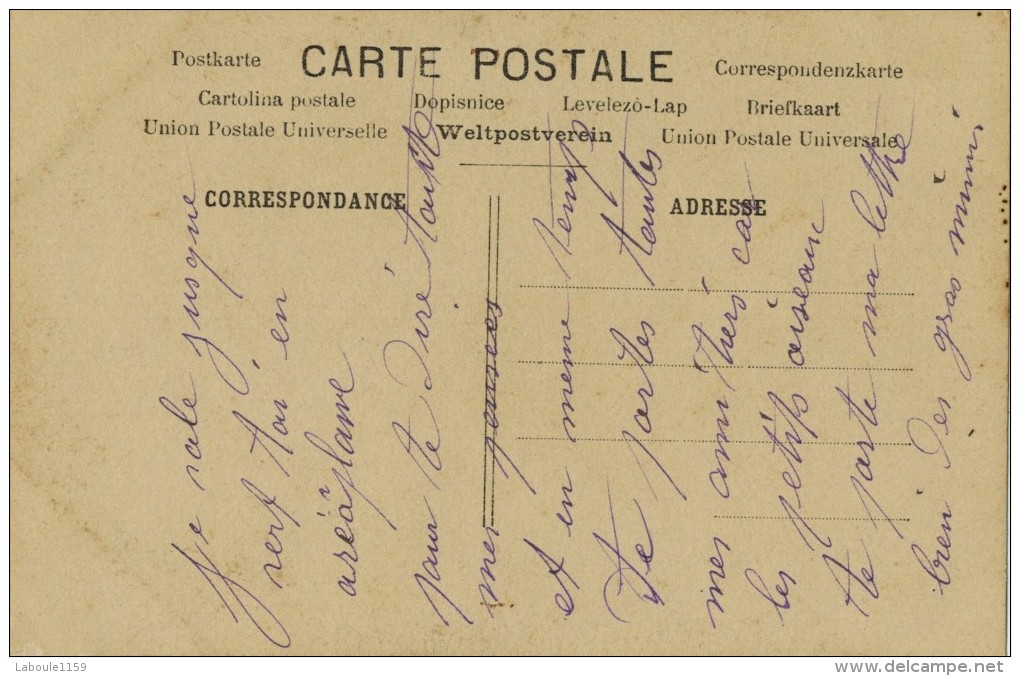 Postkarte CARTE POSTALE Correspondenzkarte
Cartolina postale Dopisnice Levelezō-Lap Briefkaart
Union Postale Universelle Weltpostverein Union Postale Universale
CORRESPONDANCE ADRESSE
Je vole jusque
vert toi en
aréaplane
pour te diré toutte
mes pensees
et en meme temps
te portes toutes
mes ami thers car
les petits oiseaux
te porte ma lettre
bien des gros mimis
Laboule1159
www.delcampe.net